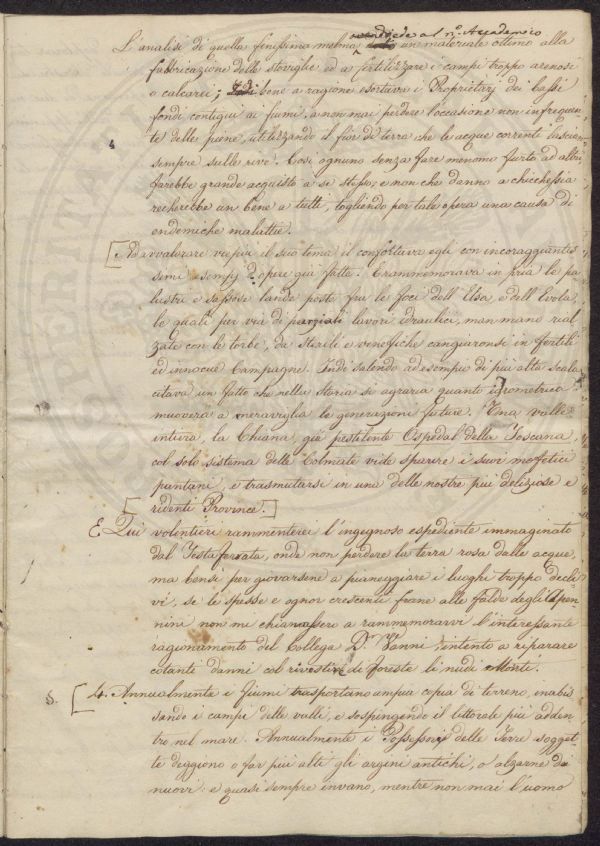 vendicò al n.º Accademico
L'analisi di quella finissima melma un materiale ottimo alla
fabbricazione delle stoviglie ed a fertilizzare i campi troppo arenosi
o calcarei; bene a ragione esortava i Proprietarj dei bassi
fondi contigui ai fiumi, a non mai perdere l'occasione non infrequen
te delle piene, utilizzando il fior di terra che le acque correnti lascian
sempre sulle rive. Così ognuno senza fare menomo furto ad altri,
farebbe grande acquisto a se stesso; e non che danno a chicchessia
recherebbe un bene a tutti, togliendo per tale opera una causa di
endemiche malattie.
[Ad avvalorare viepiù il suo tema il confortava egli con incoraggiantis
simi esempj d'opere già fatte. E rammemorava in pria le pa
lustri e sassose lande poste fra le foci dell'Elsa, e dell'Evola,
le quali per via di parziali lavori idraulici, man mano rial
zate con le torbe, da sterili e venefiche cangiaronsi in fertili
ed innocue Campagne. Indi salendo ad esempj di più alta scala
citava un fatto che nella storia si agraria quanto idrometrica
muoverà a meraviglia le generazioni future. Una valle
intiera, la Chiana, già pestilente Ospedal della Toscana,
col solo sistema delle Colmate vide sparire i suoi mefitici
pantani, e trasmutarsi in una delle nostre più deliziose e
ridenti Province.]
E Qui volentieri rammenterei l'ingegnoso espediente immaginato
dal Testaferrata, onde non perdere la terra rosa dalle acque,
ma bensì per giovarsene a pianeggiare i luoghi troppo decli
vi, se le spesse e ognor crescenti frane alle falde degli Apen
nini non mi chiamassero a rammemorarvi l'interessante
ragionamento del Collega D.r Vanni, intento a riparare
cotanti danni col rivestire di foreste li nudi Monti.
5. [4. Annualmente i fiumi trasportano ampia copia di terreno, inabis
sando i campi delle valli, e sospingendo il littorale più adden
tro, nel mare. Annualmente i Possessori delle Terre sogget
te deggiono o far più alti gli argini antichi, o alzarne dei
nuovi: e quasi sempre invano, mentre non mai l'uomo